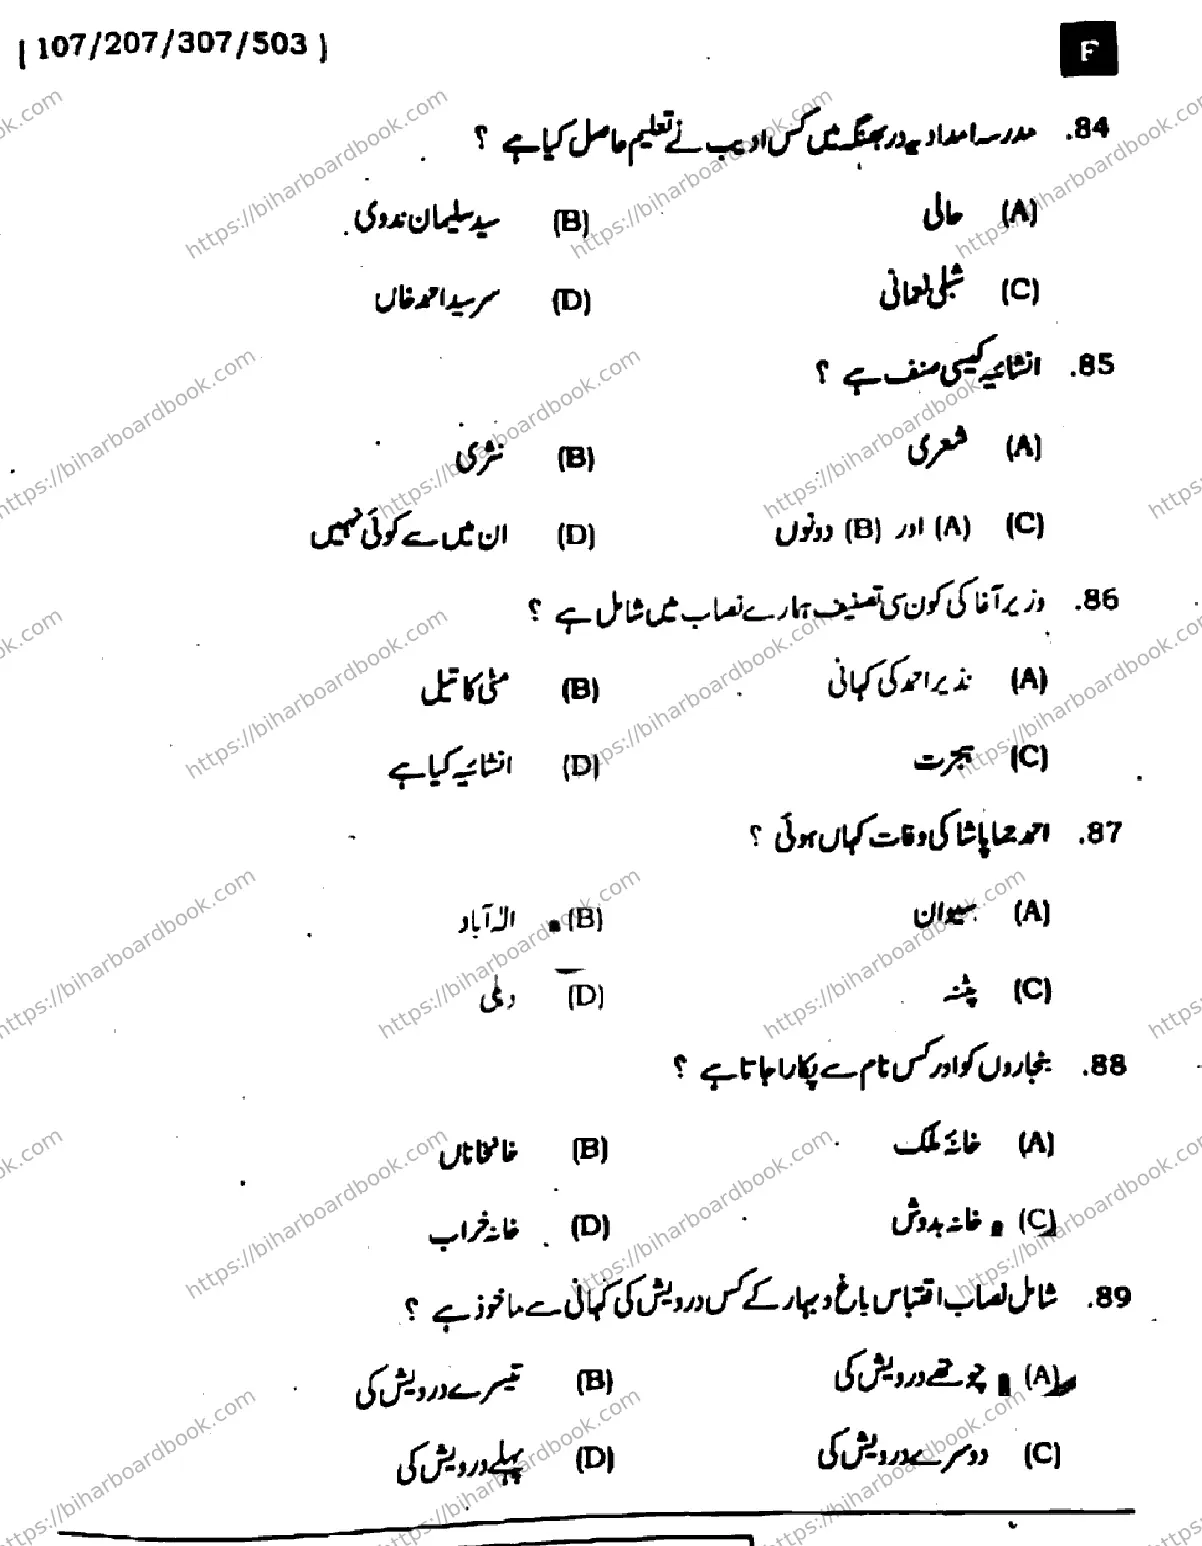 [ 107/207/307/503 ]
F
84. مدرسہ امدادیہ دربھنگہ میں کس ادیب نے تعلیم حاصل کیا ہے ؟
(A) حالی (B) سید سلیمان ندوی
(C) شبلی نعمانی (D) سر سید احمد خاں
85. انشائیہ کیسی صنف ہے ؟
(A) شعری (B) نثری
(C) (A) اور (B) دونوں (D) ان میں سے کوئی نہیں
86. وزیر آغا کی کون سی تصنیف ہمارے نصاب میں شامل ہے ؟
(A) نذیر احمد کی کہانی (B) مٹی کا تیل
(C) ہجرت (D) انشائیہ کیا ہے
87. احمد جمال پاشا کی وفات کہاں ہوئی ؟
(A) سیوان (B) الہ آباد
(C) پٹنہ (D) دہلی
88. بنجاروں کو اور کس نام سے پکارا جاتا ہے ؟
(A) خانۂ ملک (B) خانخاناں
(C) خانہ بدوش (D) خانہ خراب
89. شامل نصاب اقتباس باغ و بہار کے کس درویش کی کہانی سے ماخوذ ہے ؟
(A) چوتھے درویش کی (B) تیسرے درویش کی
(C) دوسرے درویش کی (D) پہلے درویش کی
https://biharboardbook.com